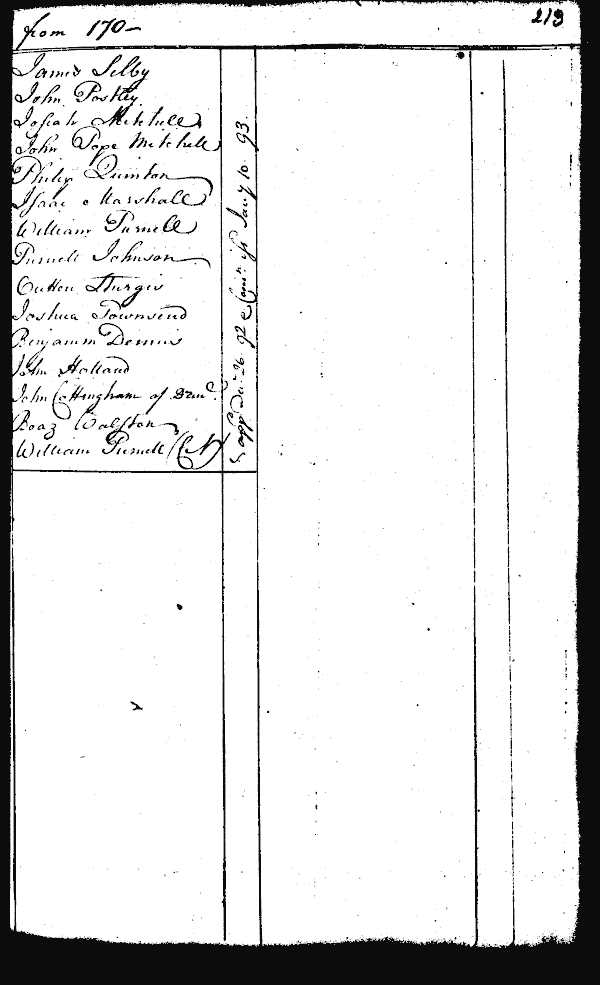 from 170-
213
James Selby
John Postley
Josiah Mitchell
John Pope Mitchell
Philip Quinton
Isaac Marshall
William Purnell
Purnell Johnson
Outten Sturgis
Joshua Townsend
Benjamin Dennis
John Holland
John Cottingham of Danl.
Boaz Walston
William Purnell (N)
app Decr 26. 92 & Comn iss Jany 10. 93.